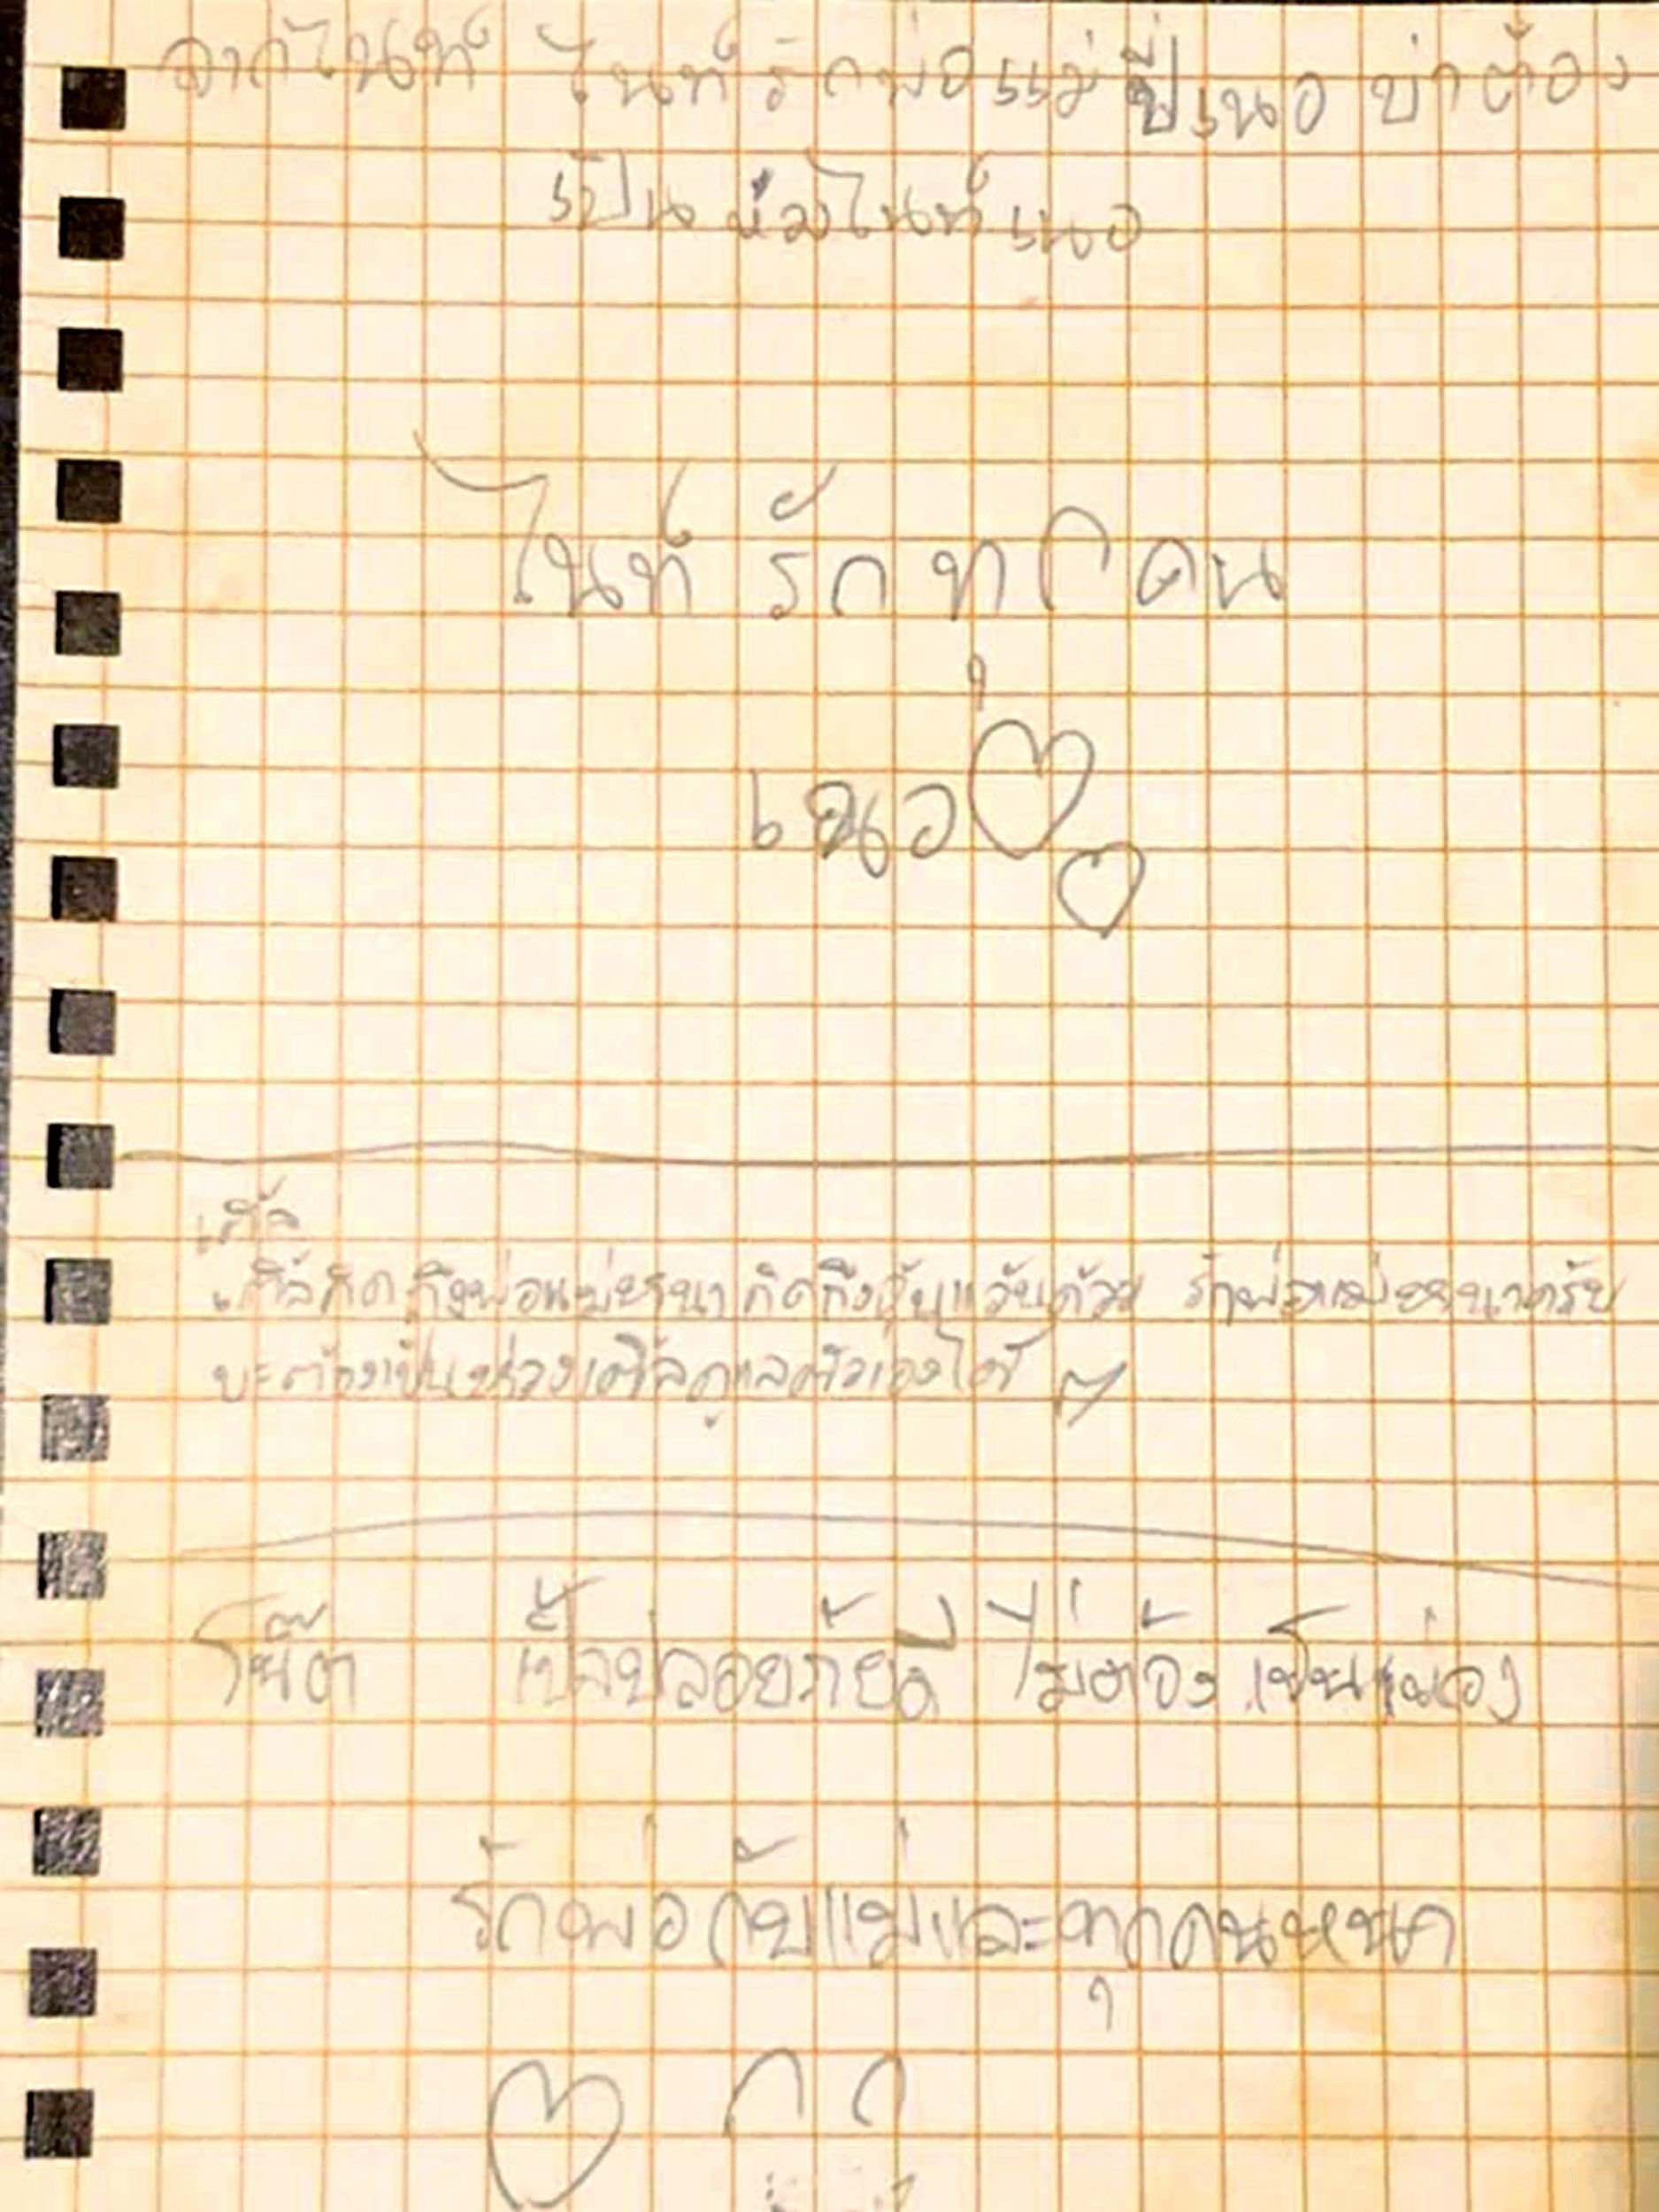 จากไนท์ ไนท์รักพ่อแม่ปี่เนอ บ่าต้อง
เป็นห่วงไนท์เนอ
ไนท์ รัก ทุกคน
เนอ
คิดถึงพ่อแม่ คิดถึง ด้วย รักพ่อแม่
บะต้องเป็นห่วง ดูแลตัวเองได้
โน๊ต ปลอยภัยดี ไม่ต้องเป็นห่วง
รักพ่อกับแม่และทุกคนหนา